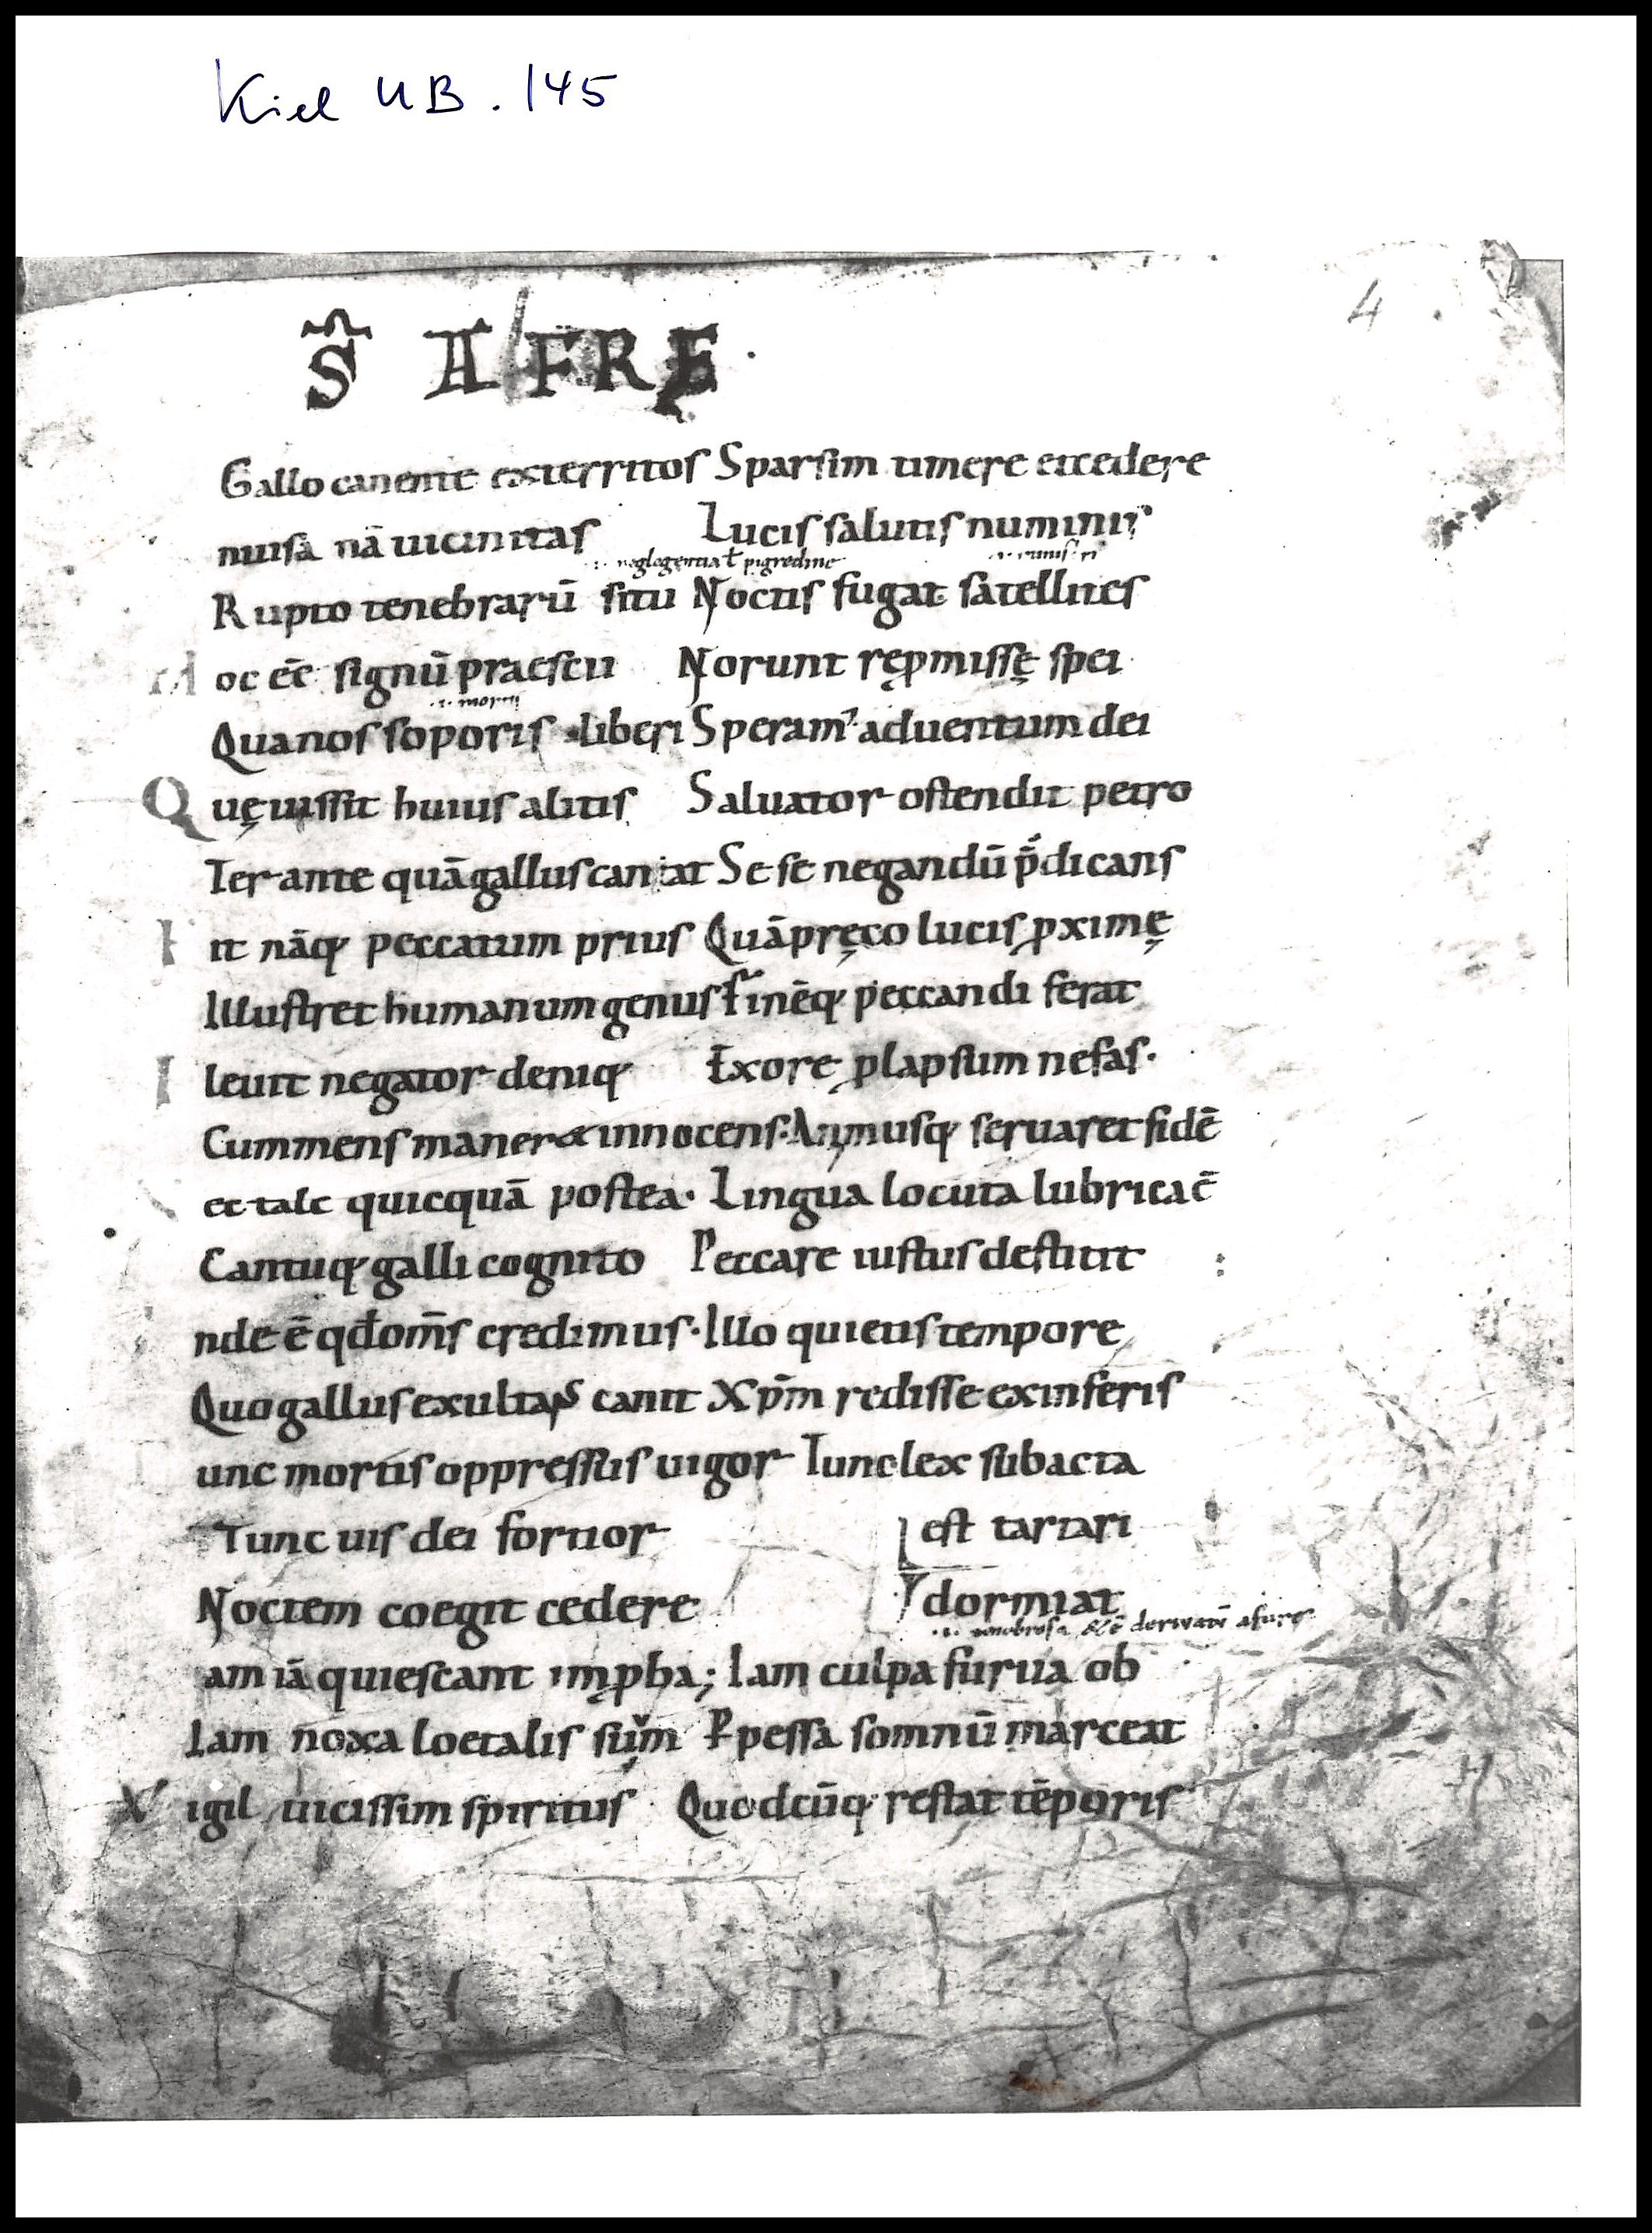 Kiel UB. 145
4
S̄ AFRĘ·
Gallo canente exterritos Sparsim timere et cedere
nuisa nā uicinitas Lucis salutis numinis
.i. neglegentia ł pigredine
Rupto tenebrarū situ Noctis fugat satellites
oc ēē signū praescii Norunt ręp̱missę spei
Quanos soporis liberi Speram᾽ aduentum dei
Q uę uis sit huius alitis Saluator ostendit petro
Ter ante quā gallus canat Se se negandū p̄dicans
it nāq; peccatum prius Quā pręco lucis ꝓximę
Illustret humanum genus Finēq; peccandi ferat
leuit negator deniq; Exore ꝓlapsum nefas·
Cum mens maner& innocens· Animusq; seruaret fidē
ec tale quicquā postea· Lingua locuta lubrica ē
Cantuq; galli cognito Peccare iustus destitit
nde ē qđ om̄s credimus· Illo quietis tempore
Quo gallus exultans canit Xp̄m redisse ex inferis
unc mortis oppressus uigor Tunc lex subacta
Tunc uis dei fortior est tartari
Noctem coegit cedere dormiat
.i. tenebrosa &ē deriuatū a furuo
am iā quiescant imꝓba; Iam culpa furua ob
Iam noxa loetalis suum Ꝑpessa somnū marceat
V igil uicissim spiritus Quodcūq; restat tēporis